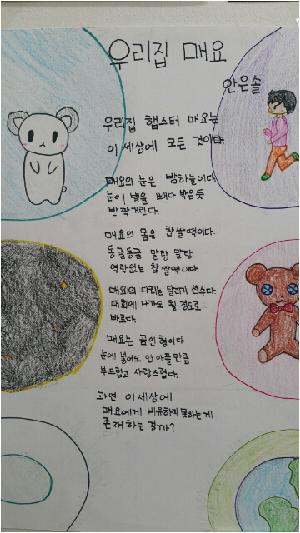 우리집 매요
안은솔
우리집 햄스터 매요는
이 세상에 모든 것이다
매요의 눈은 밤하늘이다
눈이 별을 빼다 박은듯
반짝거린다.
매요의 몸은 찹쌀떡이다.
동글동글 말린 몸은
역락없는 찹쌀떡이다
매요의 다리는 달리기 선수다.
대회에 나가도 될 정도로
빠르다.
매요는 곰인형이다
눈에 넣어도 안 아플만큼
부드럽고 사랑스럽다.
과연 이 세상에
매요에게 비유하지 못하는게
존재하는 걸까?